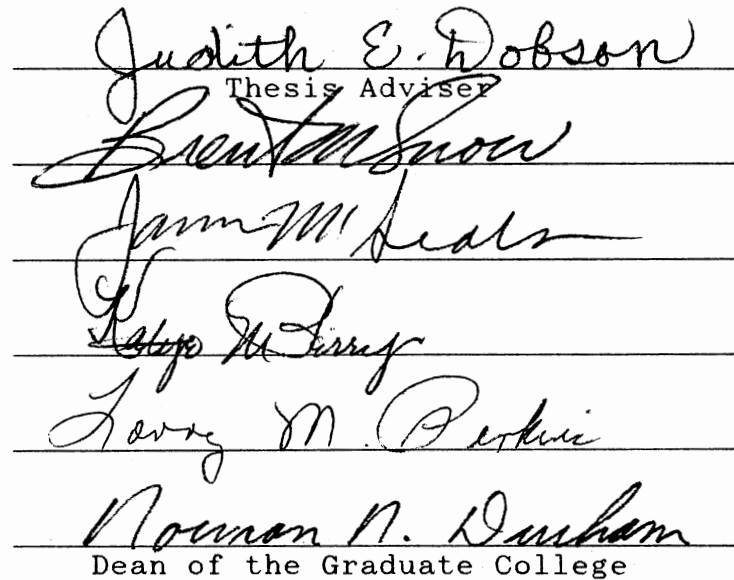 Judith E. Dobson
Thesis Adviser
Brent M Snow
James M Seals
Kayte M Perry
Larry M. Perkins
Norman N. Durham
Dean of the Graduate College